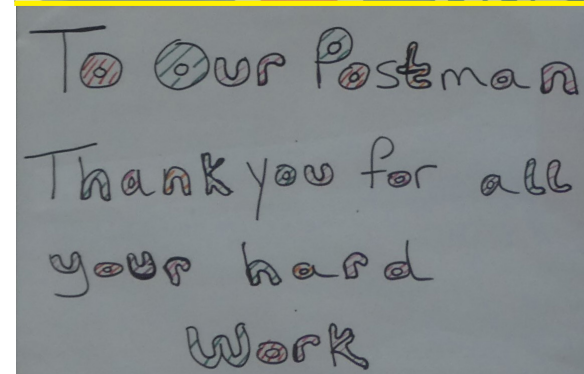 To Our Postman
Thank you for all
your hard
Work